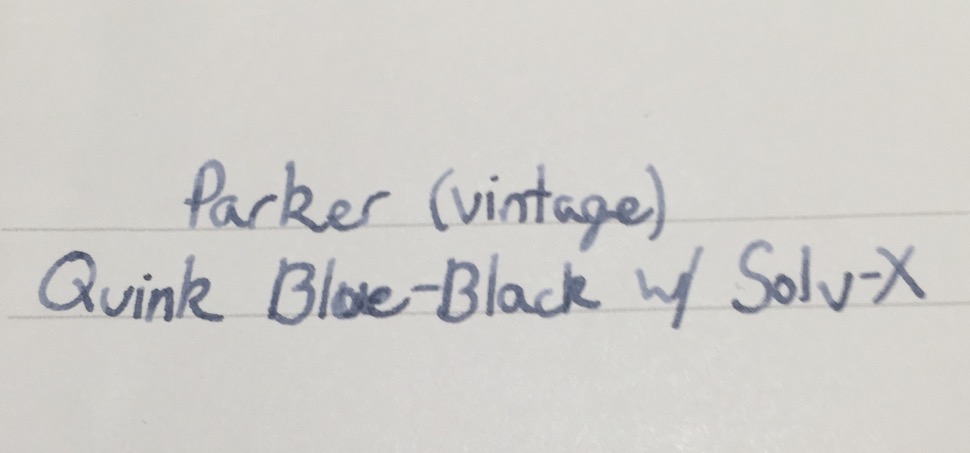 Parker (vintage)
Quink Blue-Black w/ Solv-X